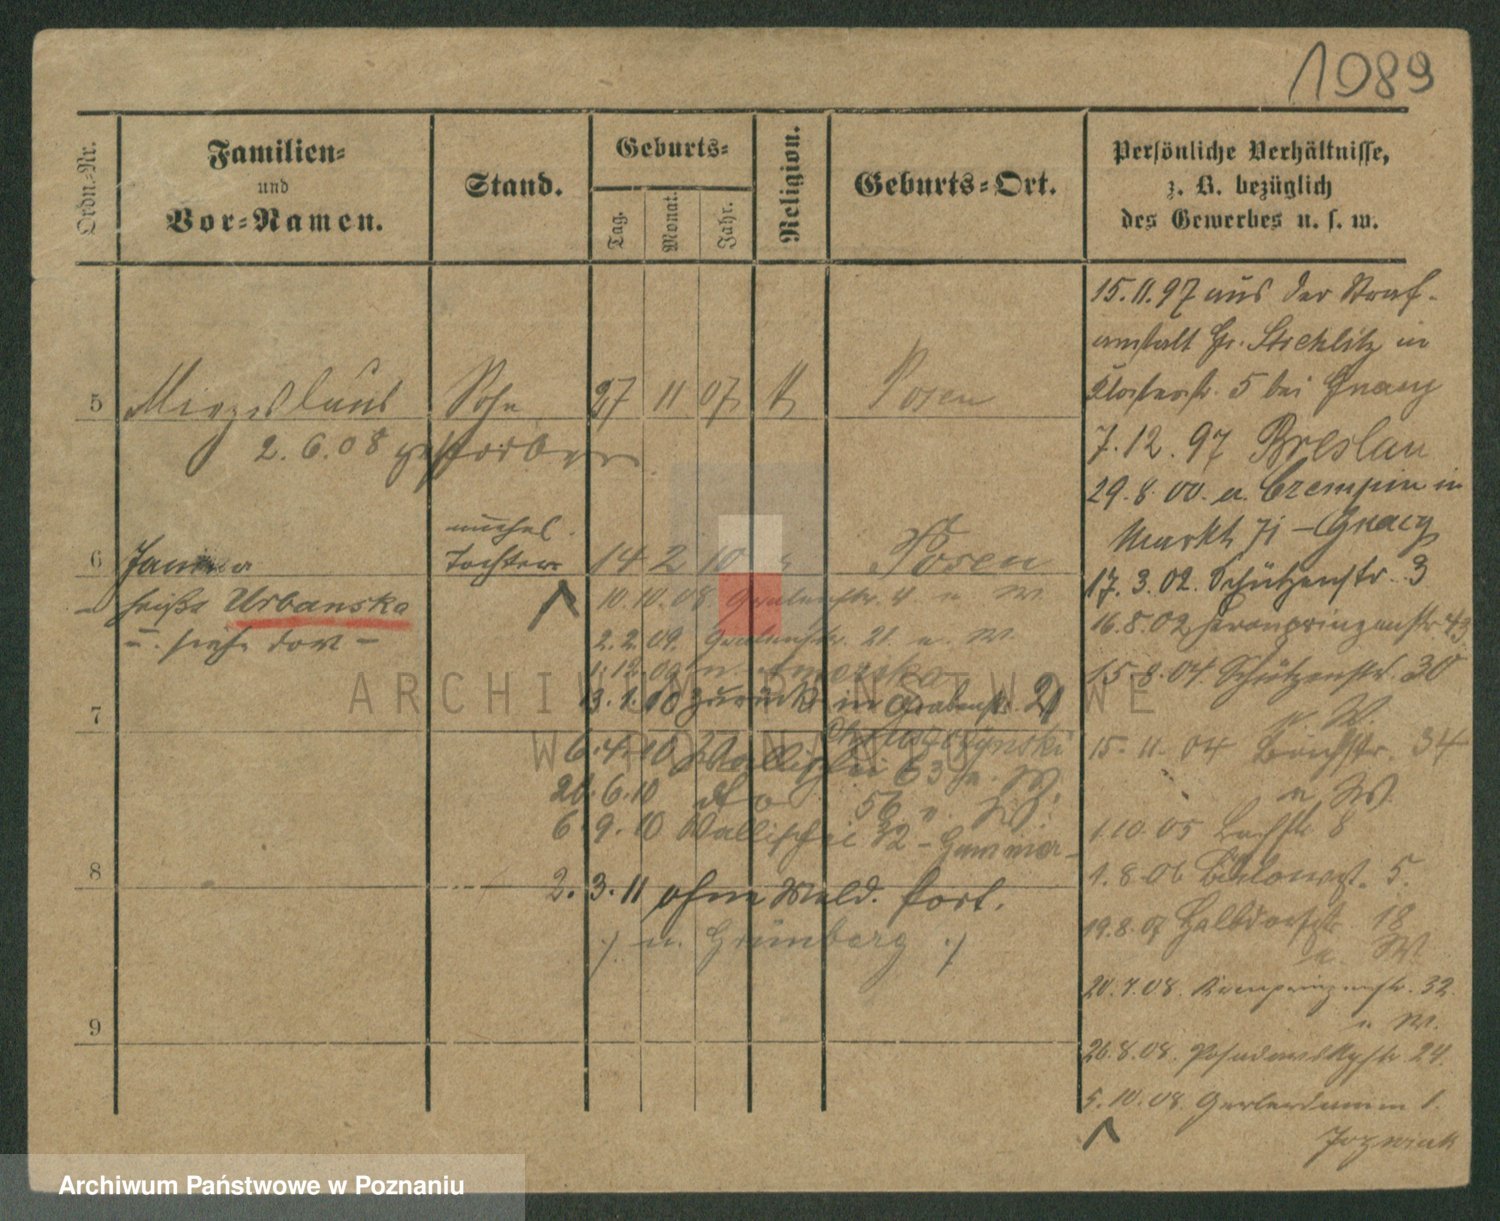 1989
Ordn.-Nr.
Familien-
und
Vor-Namen.
Stand.
Geburts-
Tag.
Monat.
Jahr.
Religion.
Geburts-Ort.
Persönliche Verhältnisse,
z. B. bezüglich
des Gewerbes u. s. w.
5 Miezislaus Sohn 27 11 07 K Posen
2.6.08 gestorben.
unehel.
6 Janina Tochter 14 2 10 Posen
heißt Urbanska
siehe dort
10.10.08 Grabenstr. 4. u. W.
2.2.09. Grabenstr. 21. u. W.
1.12.09 n. Amerika
3.1.10 zurück in Grabenstr. 21
7
6.4.10 Wallischei 63 u. W.
21.6.10 dto 56 u. W.
6.9.10 Wallischei 32
8
2.3.11 ohne Meld. fort.
./ n. Grünberg ./
9
15.11.97 aus der Straf-
anstalt Gr. Strehlitz in
Klosterstr. 5 bei
7.12.97 Breslau
29.8.00. a. Czempin in
Markt 71
17.3.02. Schützenstr. 3
16.8.02 Kronprinzenstr 43
15.8.04. Schützenstr. 30
u. W.
15.11.04 34
u W.
1.10.05 Bachstr 8
1.8.06 5.
19.8.07 Halbdorfstr 18
u. W.
20.7.08. Kronprinzenstr. 32
u W.
26.8.08. Posadowskystr 24.
5.10.08. Gerberdamm 1.
Jozwiak
ARCHIWUM PAŃSTWOWE
W POZNANIU
Archiwum Państwowe w Poznaniu